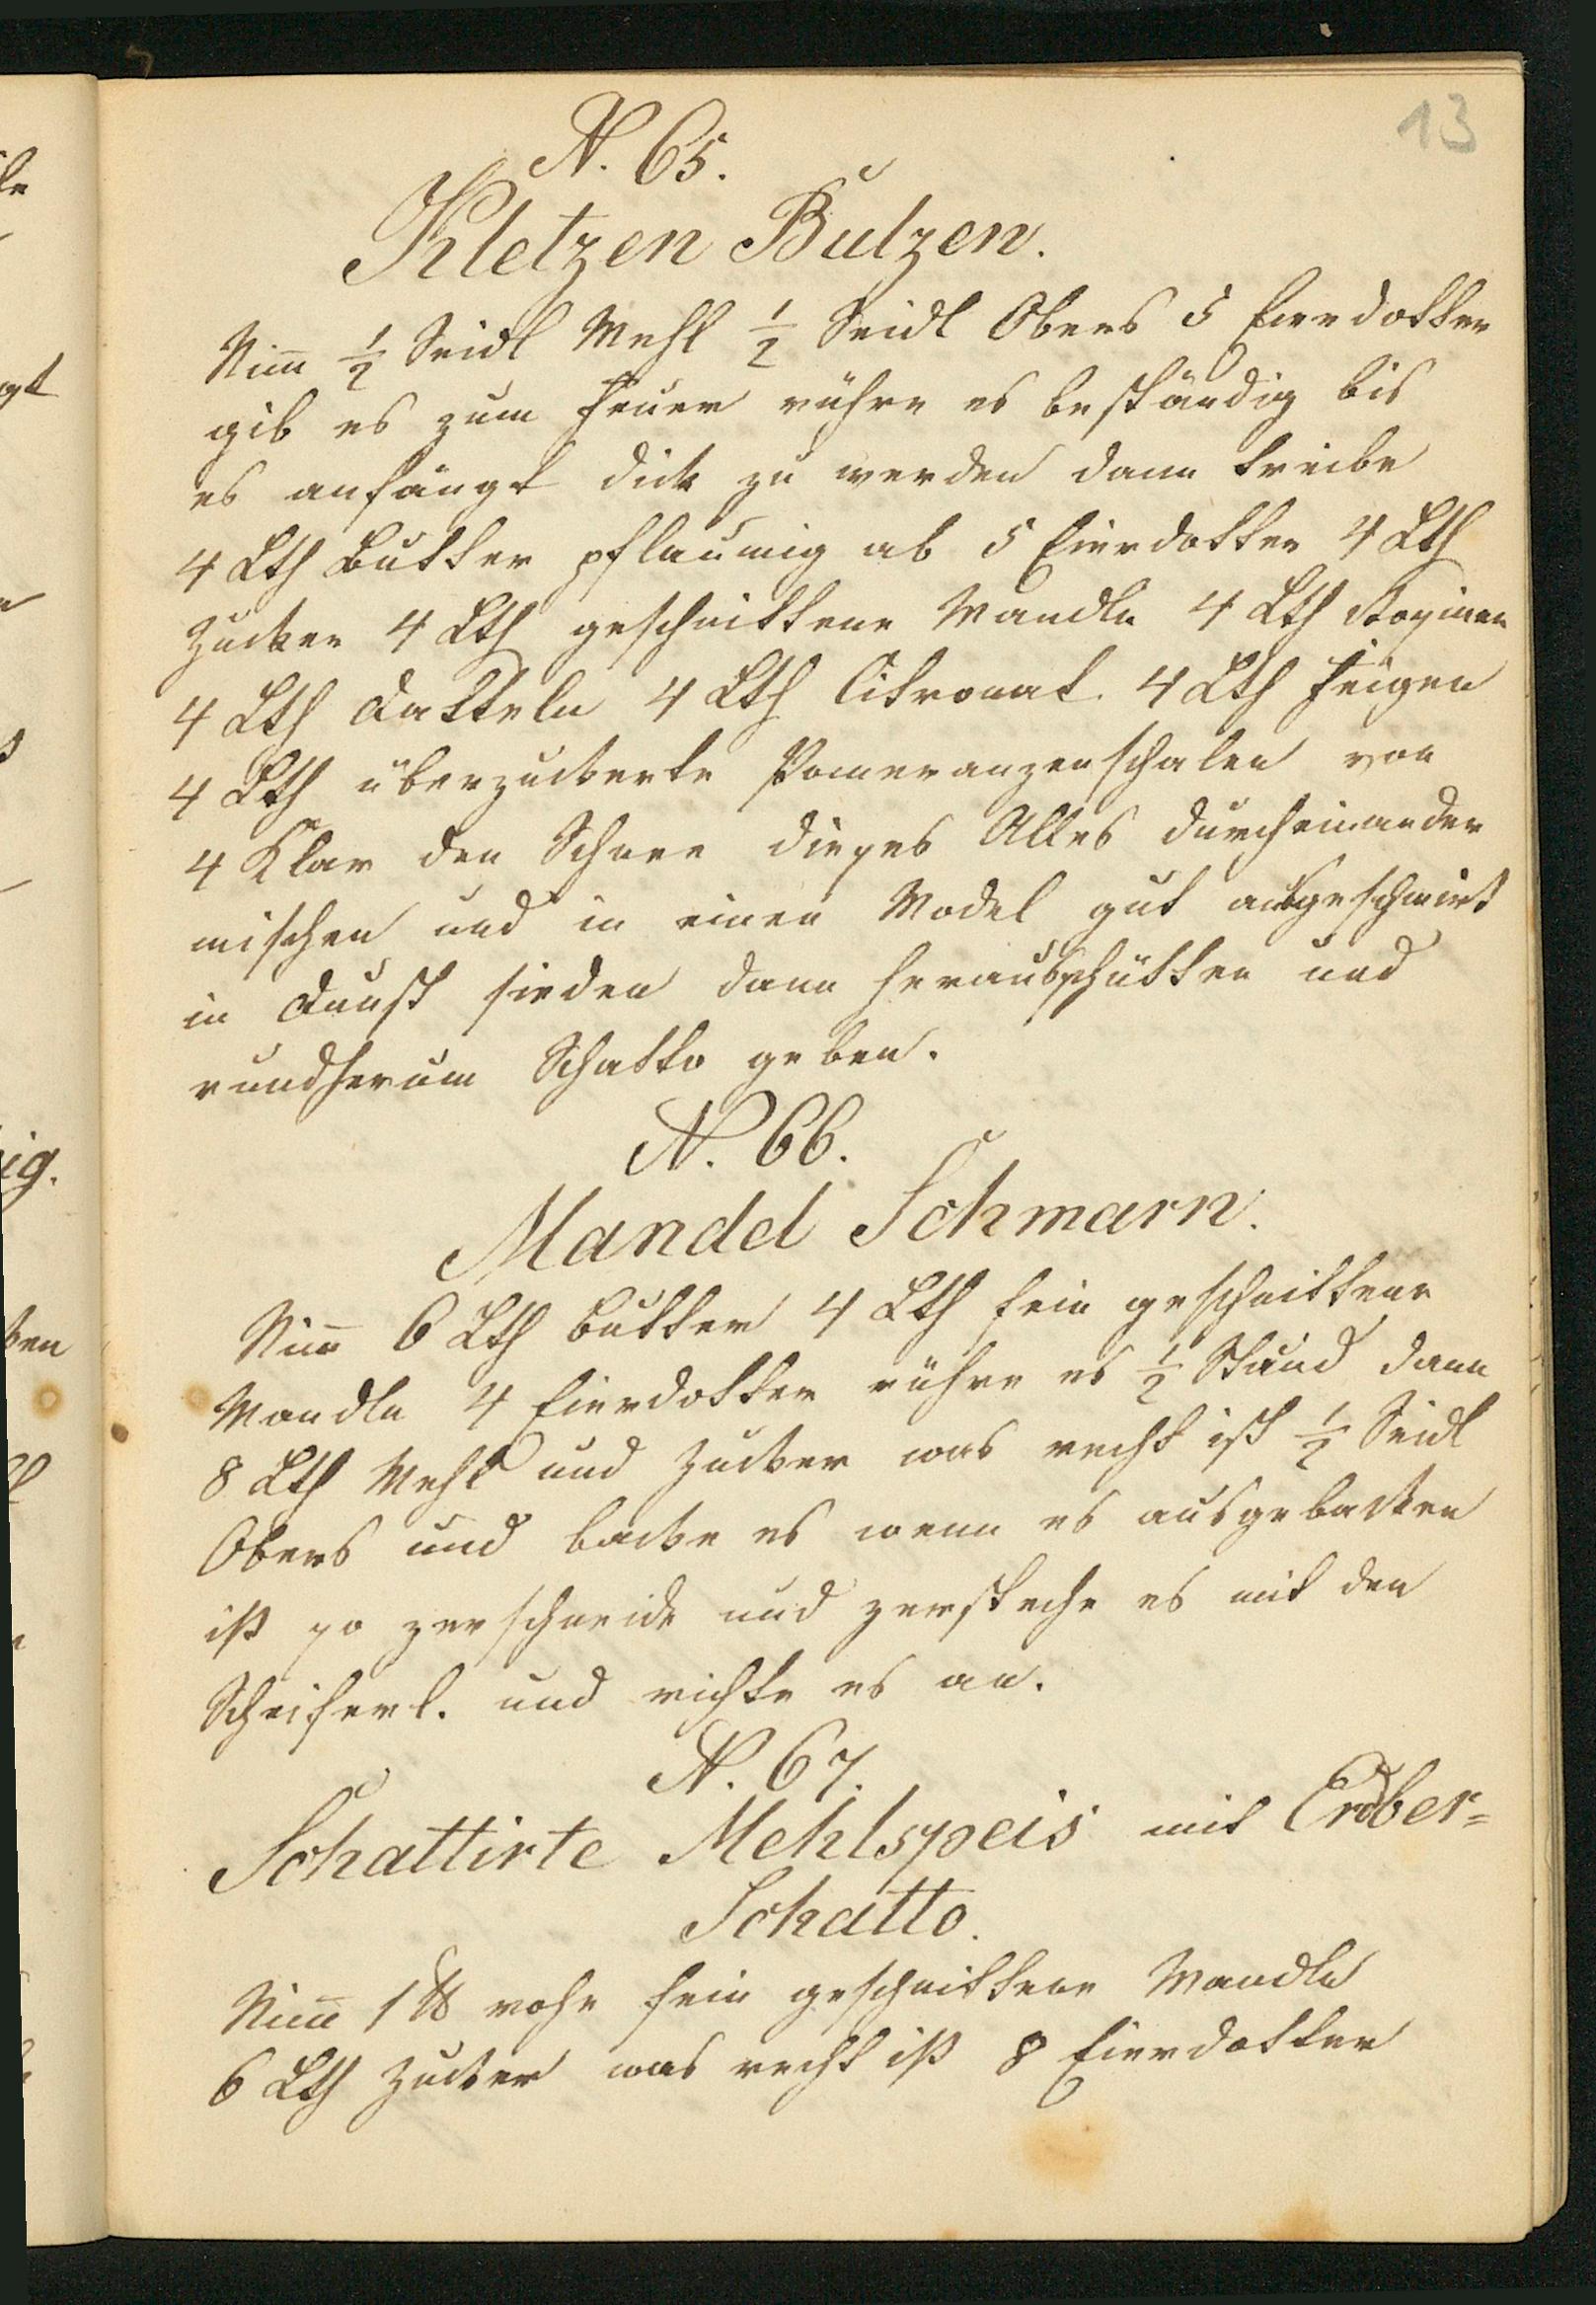 13
N. 65.
Kletzen Butzen.
Nim̄ ½ Seidl Mehl ½ Seidl Obers 5 Eierdotter
gib es zum Feuer rühre es beständig bis
es anfängt dick zu werden dann treibe
4 Lth Butter pflaumig ab 5 Eierdotter 4 Lth
Zucker 4 Lth geschnittene Mandln 4 Lth Rosinen
4 Lth Datteln 4 Lth Citronat. 4 Lth Feigen
4 Lth überzuckerte Pomeranzenschalen von
4 Klar den Schnee dieses Alles durcheinander
mischen und in einen Model gut ausgeschmirt
in Dunst sieden dann herausschütten und
rundherum Schatto geben.
N. 66.
Mandel Schmarn.
Nim̄ 6 Lth Butter 4 Lth fein geschnittene
Mandln 4 Eierdotter rühre es ½ Stund dann
8 Lth Mehl und Zucker was recht ist ½ Seidl
Obers und backe es wenn es ausgebacken
ist so zerschneide und zersteche es mit den
Scheiferl. und richte es an.
N. 67.
Schattirte Mehlspeis mit Erdber=
Schatto.
Nim̄ 1 ℔ rohe fein geschnittene Mandln
6 Lth Zucker was recht ist 8 Eierdotter